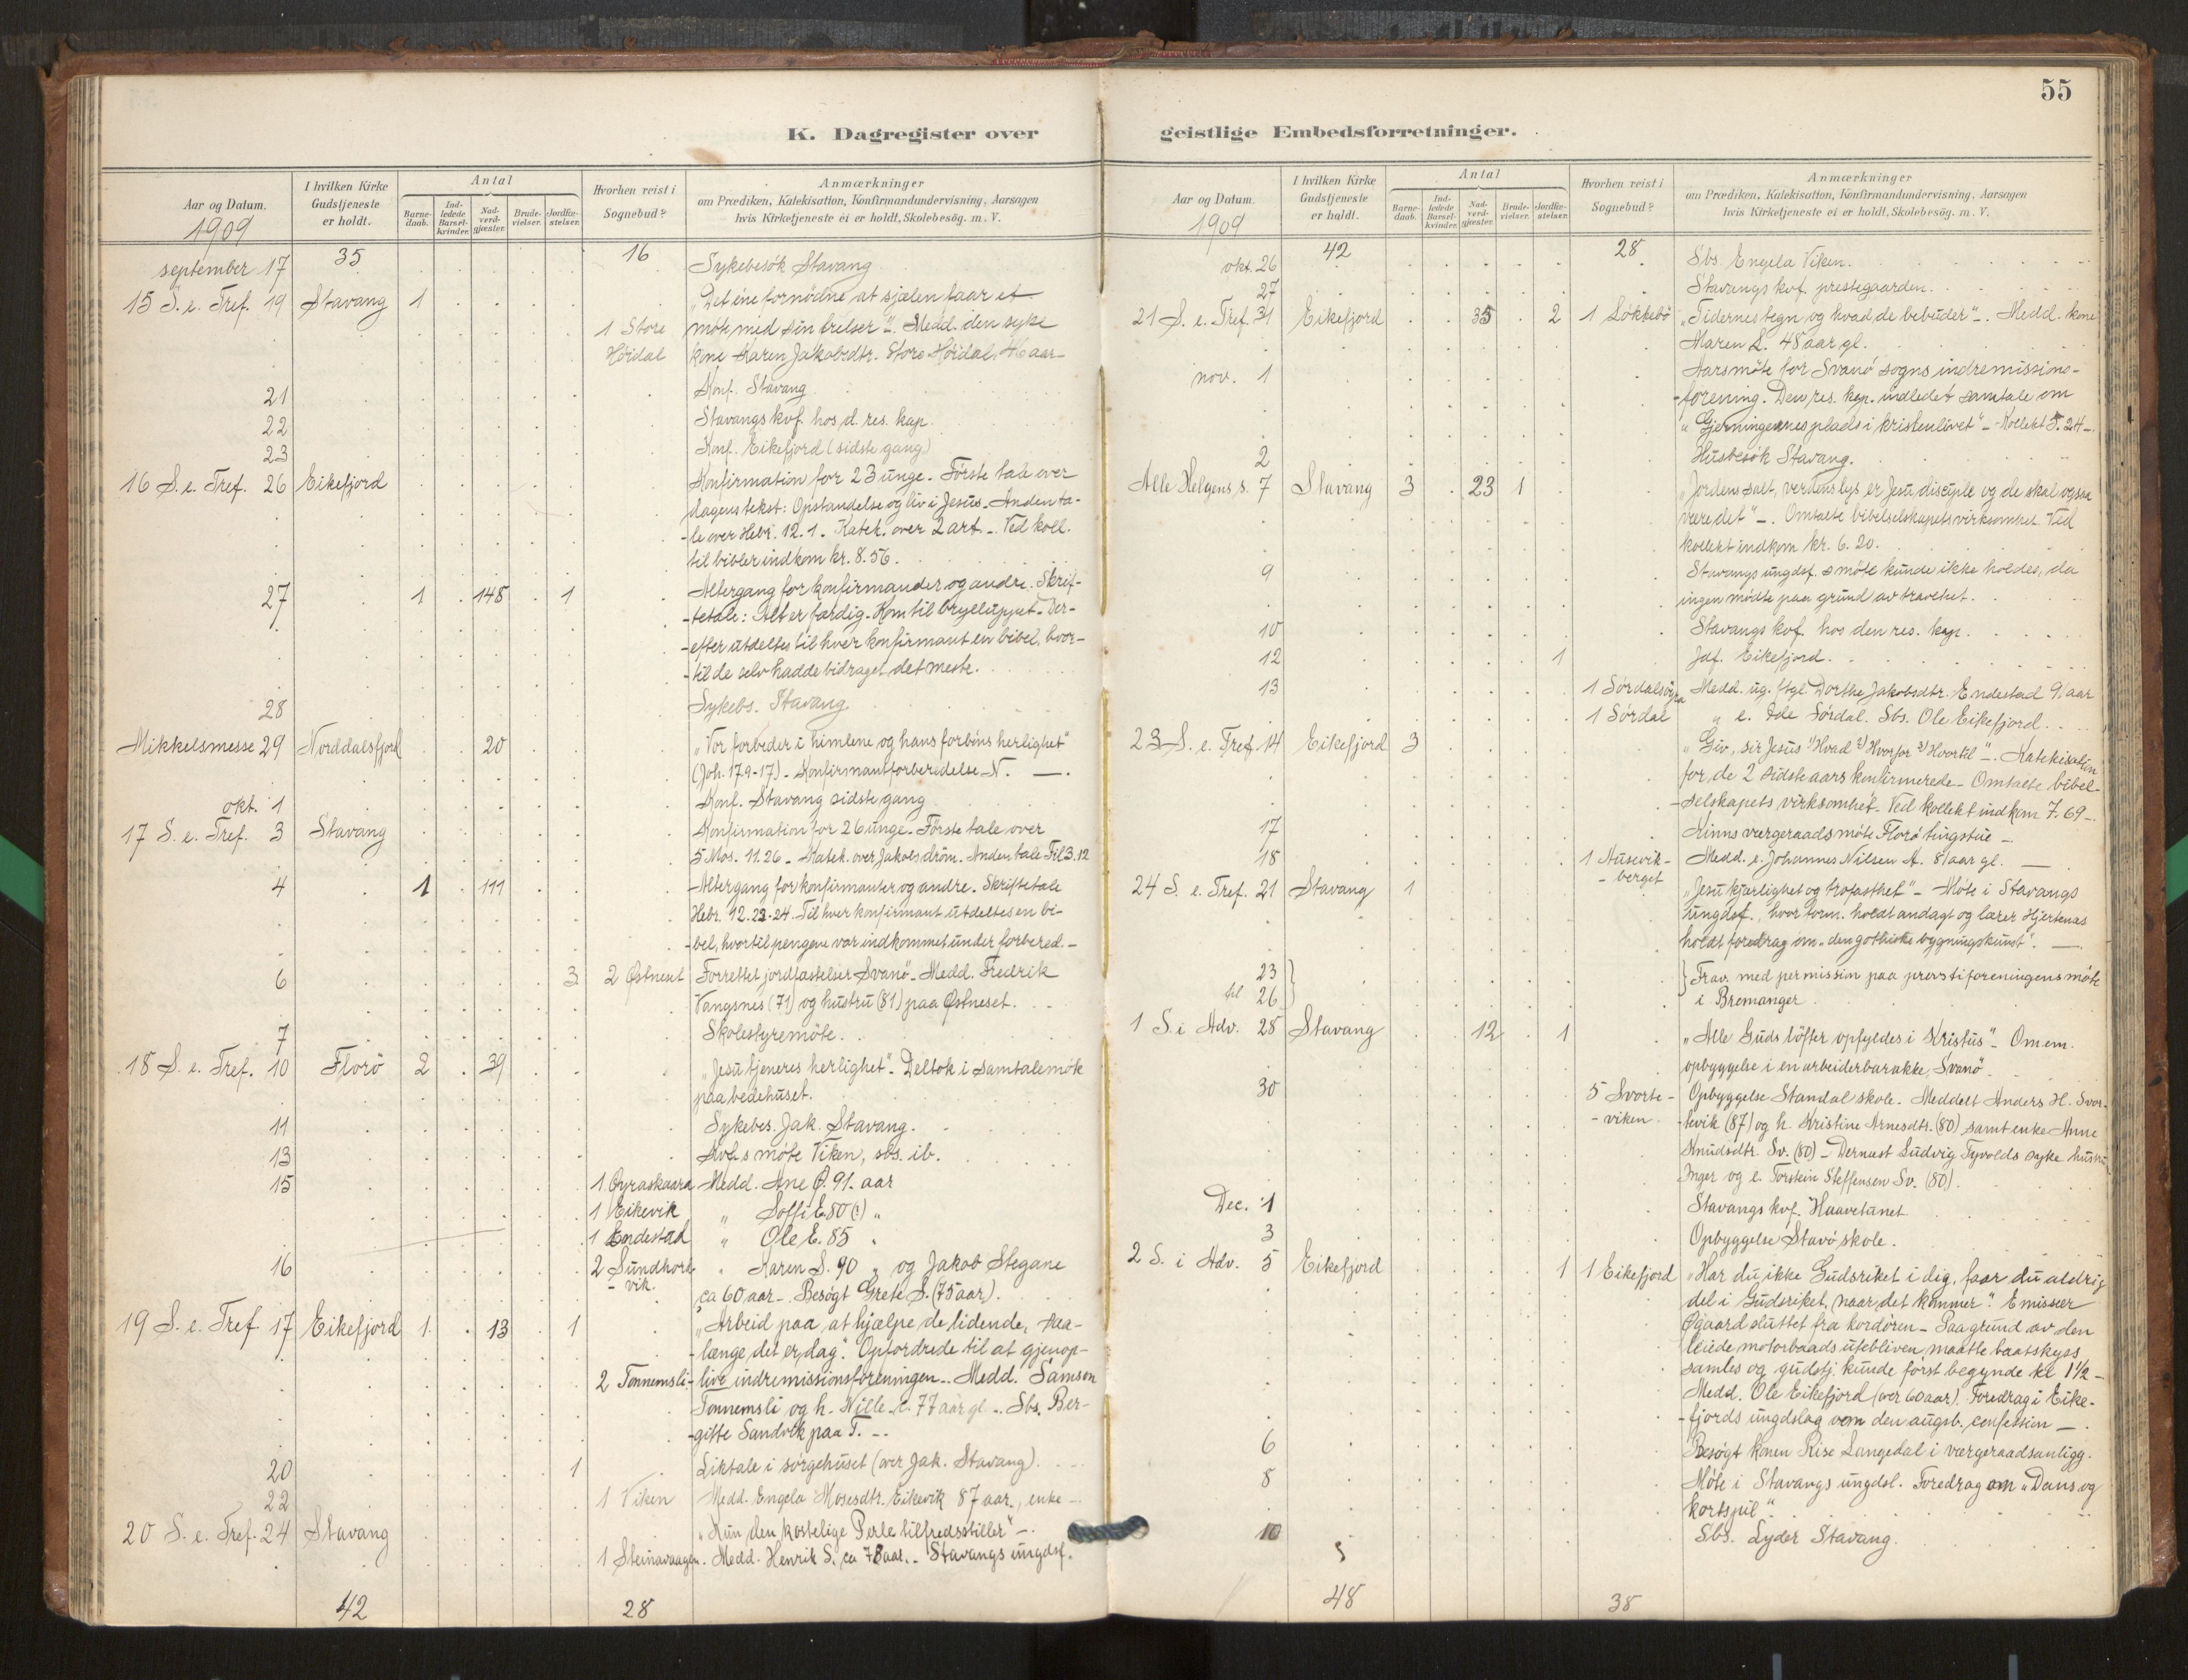 55
K. Dagregister over geistlige Embedsforretninger.
Aar og Datum.
1909
I hvilken Kirke Gudstjeneste er holdt.
Antal
Barne-daab.
Ind-ledede Barsel-kvinder.
Nad-verd-gjæster.
Brude-vielser.
Jordfæ-stelser.
Hvorhen reist i Sognebud?
Anmærkninger
om Prædiken, Katekisation, Konfirmandundervisning, Aarsagen
hvis Kirketjeneste ei er holdt, Skolebesög. m. V.
35 16
september 17 Sykebesök Stavang
15 S. e. Tref. 19 Stavang 1 „Det ene fornödne, at sjælen faar et
1 Store möte med sin frelser". Medd. den syke
Höidal kone Karen Jakobsdtr. Store Höidal, 46 aar
21 Konf. Stavang
22 Stavangs kvf. hos d. res. kap.
23 Konf. Eikefjord (sidste gang)
16 S. e. Tref. 26 Eikefjord Konfirmation for 23 unge. Förste tale over
dagens tekst: Opstandelse og liv i Jesus. Anden ta-
-le over Hebr. 12.1. Katek. over 2 art. Ved koll.
til bibler indkom kr. 8.56.
27 1 148 1 Altergang for konfirmander og andre. Skrif-
-tetale: Alt er færdig. Kom til brylluppet. Der-
-efter utdeltes til hver konfirmant en bibel, hvor-
-til de selv hadde bidraget det meste.
28 Sykebs. Stavang
Mikkelsmesse 29 Norddalsfjord 20 „Vor forbeder i himlene og hans forböns herlighet"
(Joh. 17.9-17). Konfirmantforberedelse N. —.
okt. 1 Konf. Stavang sidste gang
17 S. e. Tref. 3 Stavang Konfirmation for 26 unge. Förste tale over
5 Mos. 11.26. Katek. over Jakobs dröm. Anden tale Fil 3.12
4 1 111 Altergang for konfirmanter og andre. Skriftetale
Hebr. 12.22-24. Til hver konfirmant utdeltes en bi-
-bel, hvortil pengene var indkommet under forbered.
6 3 2 Østneset Forrettet jordfæstelser Svanö. Medd. Fredrik
Vangsnes (71) og hustru (81) paa Østneset.
7 Skolestyremöte.
18 S. e. Tref. 10 Florö 2 39 „Jesu tjeneres herlighet". Deltok i samtalemöte
paa bedehuset.
11 Sykebes. Jak. Stavang.
13 Kvf.s möte Viken, sbs. ib.
15 1 Øyraskaara Medd. Ane Ø. 91. aar
1 Eikevik „ Soffi E. 80 (?) „
1 Endestad „ Ole E. 85 „
16 2 Sundhore-vik. „ Karen S. 90 „ og Jakob Stegane
ca 60 aar. Besögt Grete S. (75 aar).
19 S. e. Tref. 17 Eikefjord 1 13 1 „Arbeid paa, at hjælpe de lidende, saa-
-længe det er dag". Opfordrede til at gjenop-
2 Tonnemsli -live indremissionsforeningen. Medd. Samson
Tonnemsli og h. Nille c. 77 aar gl. Sbs. Ber-
-gitte Sandvik paa T.
20 1 Liktale i sörgehuset (over Jak. Stavang).
22 1 Viken Medd. Engela Mosesdtr. Eikevik 87 aar, enke
20 S. e. Tref. 24 Stavang „Kun den kostelige Perle tilfredsstiller"
1 Steinavaagen. Medd. Henrik S. ca 78 aar. Stavangs ungdsf.
42 28
Aar og Datum.
1909
I hvilken Kirke Gudstjeneste er holdt.
Antal
Barne-daab.
Ind-ledede Barsel-kvinder.
Nad-verd-gjæster.
Brude-vielser.
Jordfæ-stelser.
Hvorhen reist i Sognebud?
Anmærkninger
om Prædiken, Katekisation, Konfirmandundervisning, Aarsagen
hvis Kirketjeneste ei er holdt, Skolebesög. m. V.
42 28
okt. 26 Sbs. Engela Viken.
27 Stavangs kvf. prestegaarden.
21 S. e. Tref. 31 Eikefjord 35 2 1 Løkkebö „Tidernes tegn og hvad de bebuder". Medd. kone
Maren L. 48 aar gl.
nov. 1 Aarsmöte for Svanö sogns indremissions-
-forening. Den res. kap. indledet samtale om
„Gjerningernes plads i kristenlivet" - Kollekt 5.24
2 Husbesök Stavang.
Alle Helgens s. 7 Stavang 3 23 1 „Jordens salt, verdens lys er Jesu disciple og de skal ogsaa
være det". Omtalte bibelselskapets virksomhet. Ved
kollekt indkom kr. 6.20.
9 Stavangs ungdsf.s möte kunde ikke holdes, da
ingen mödte paa grund av travelhet.
10 Stavangs kvf. hos den res. kap.
12 1 Jdf. Eikefjord.
13 1 Sördalsöyra Medd. ug. ftgl. Dorthe Jakobsdtr. Endestad 91 aar
1 Sördal „ e. Ide Sördal. Sbs. Ole Eikefjord.
23 S. e. Tref. 14 Eikefjord 3 „Giv, sir Jesus 1) Hvad 2) Hvorfor 3) Hvortil". Katekisation
for de 2 sidste aars konfirmerede. Omtalte bibel-
-selskapets virksomhet. Ved kollekt indkom 7.69
17 Kinns værgeraads möte Florö tingstue
18 1 Ausevik-berget Medd. e. Johannes Nilsen A. 81 aar gl.
24 S. e. Tref. 21 Stavang 1 „Jesu kjærlighet og trofasthet" - Möte i Stavangs
ungdsf., hvor form. holdt andagt og lærer Hjertenæs
holdt foredrag om „den gothiske bygningskunst".
23 til 26 Frav. med permission paa prevstiforeningens möte
i Bremanger
1 S. i Adv. 28 Stavang 12 1 „Alle Guds löfter opfyldes i Kristus". Om em.
opbyggelse i en arbeiderbarakke, Svanö.
30 5 Svorte-viken Opbyggelse Standal skole. Meddelt Anders H. Svor-
-tevik (87) og h. Kristine Arnesdtr. (80) samt enke Anne
Knudsdtr. Sv. (80) - Dernæst Ludvig Tyvolds syke hustru
Inger og e. Torstein Steffensen Sv. (80).
Dec. 1 Stavangs kvf. Haavetunet
3 Opbyggelse Stavö skole.
2 S. i Adv. 5 Eikefjord 1 1 Eikefjord „Har du ikke Gudsriket i dig, faar du aldrig
del i Gudsriket, naar det kommer". Emissær
Øgaard sluttet fra kordören. Paa grund av den
leiede motorbaads utebliven, maatte baatskyss
samles og gudstj. kunde först begynde kl 1½
Medd. Ole Eikefjord (over 60 aar). Foredrag i Eike-
-fjords ungdslag om den augsb. confession
6 Besögt konen Rise Langedal i værgeraadsanligg.
8 Möte i Stavangs ungdsl. Foredrag om „Dans og
kortspil".
10 Sbs. Lyder Stavang.
48 38